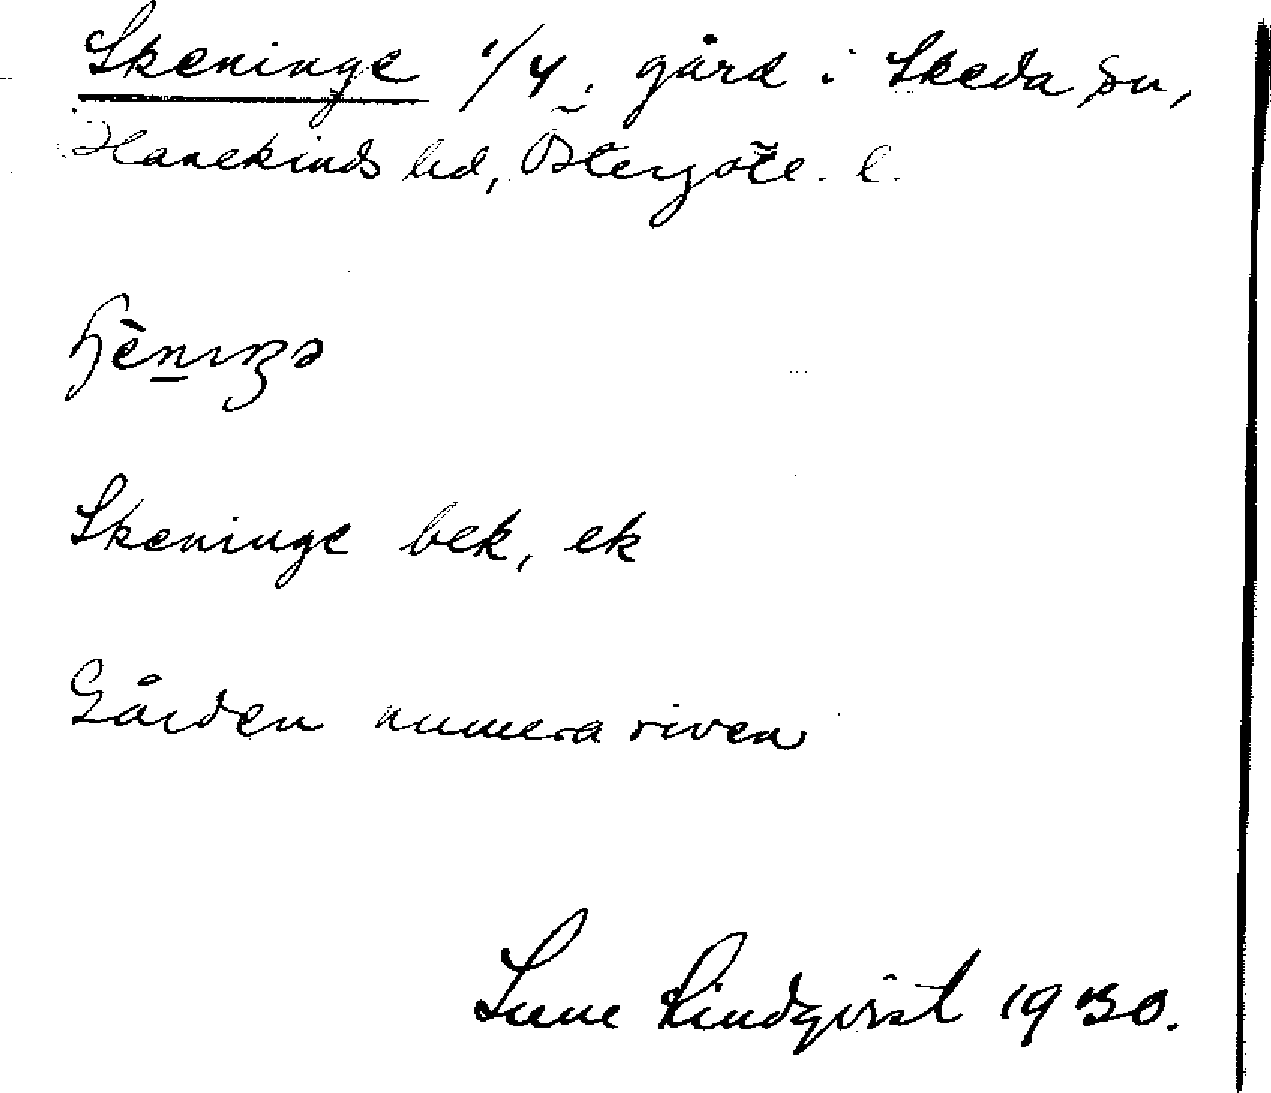 Skeninge 1/4, gård i Skeda sn,
Hanekinds hd, Östergötl. l.
Skeninge bek, ek
Gården numera riven
Sune Lindqvist 1930.